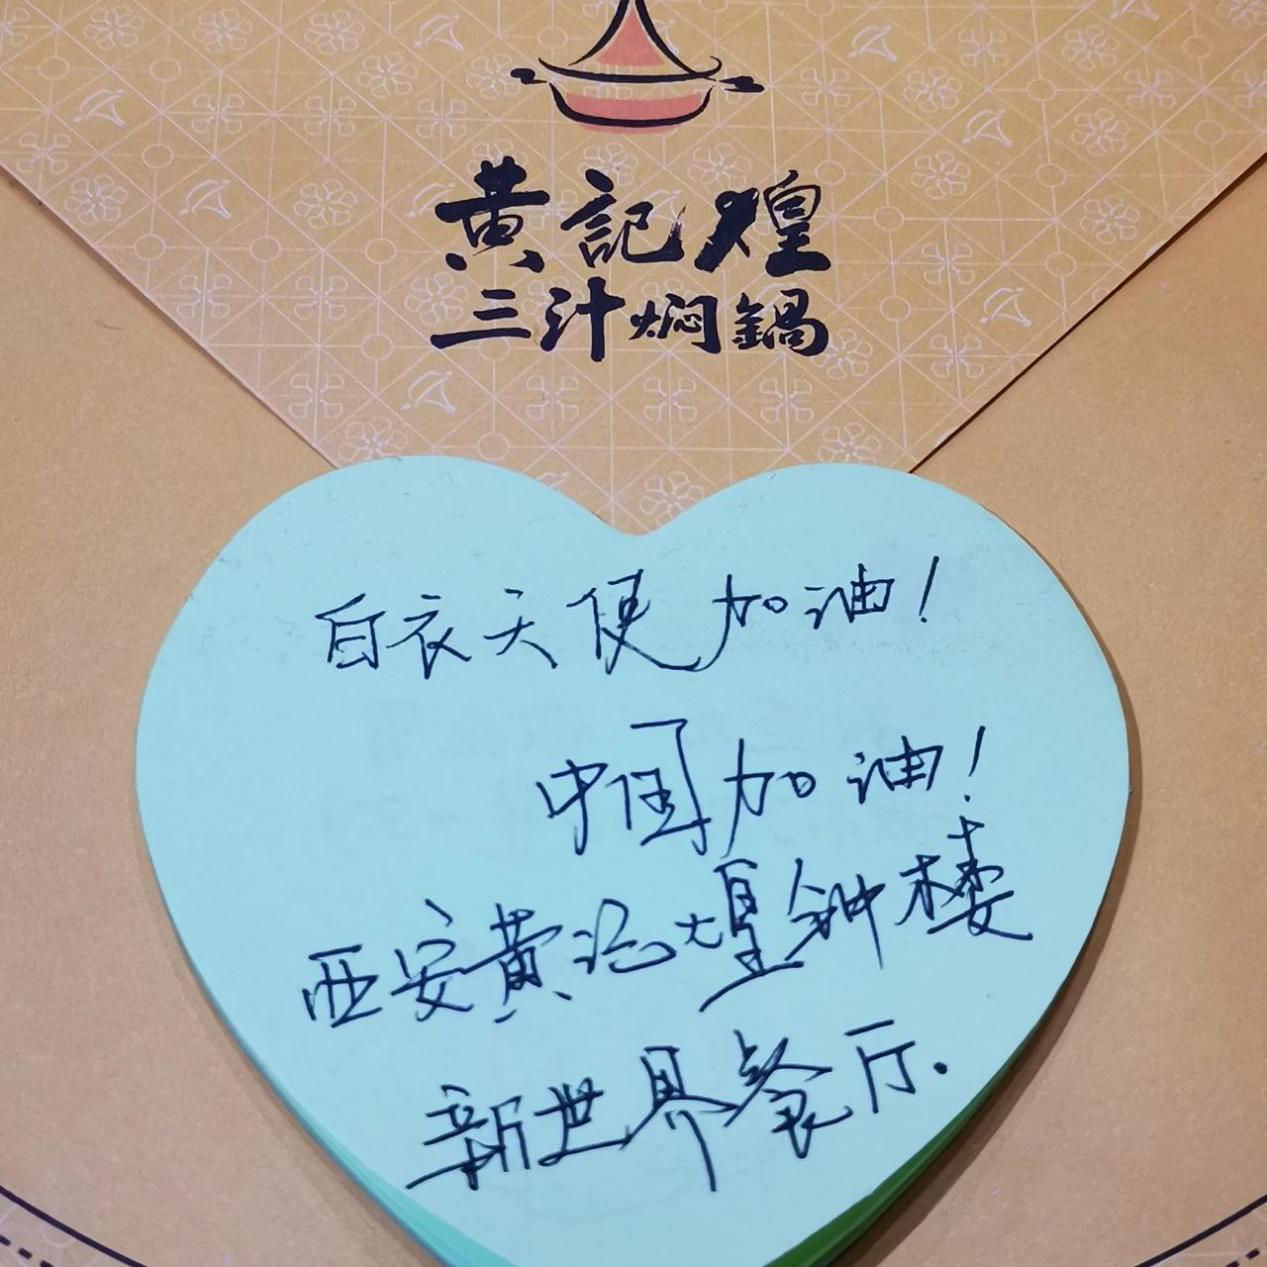 黄記煌
三汁焖鍋
白衣天使加油！
中国加油！
西安黄记煌钟楼
新世界餐厅.